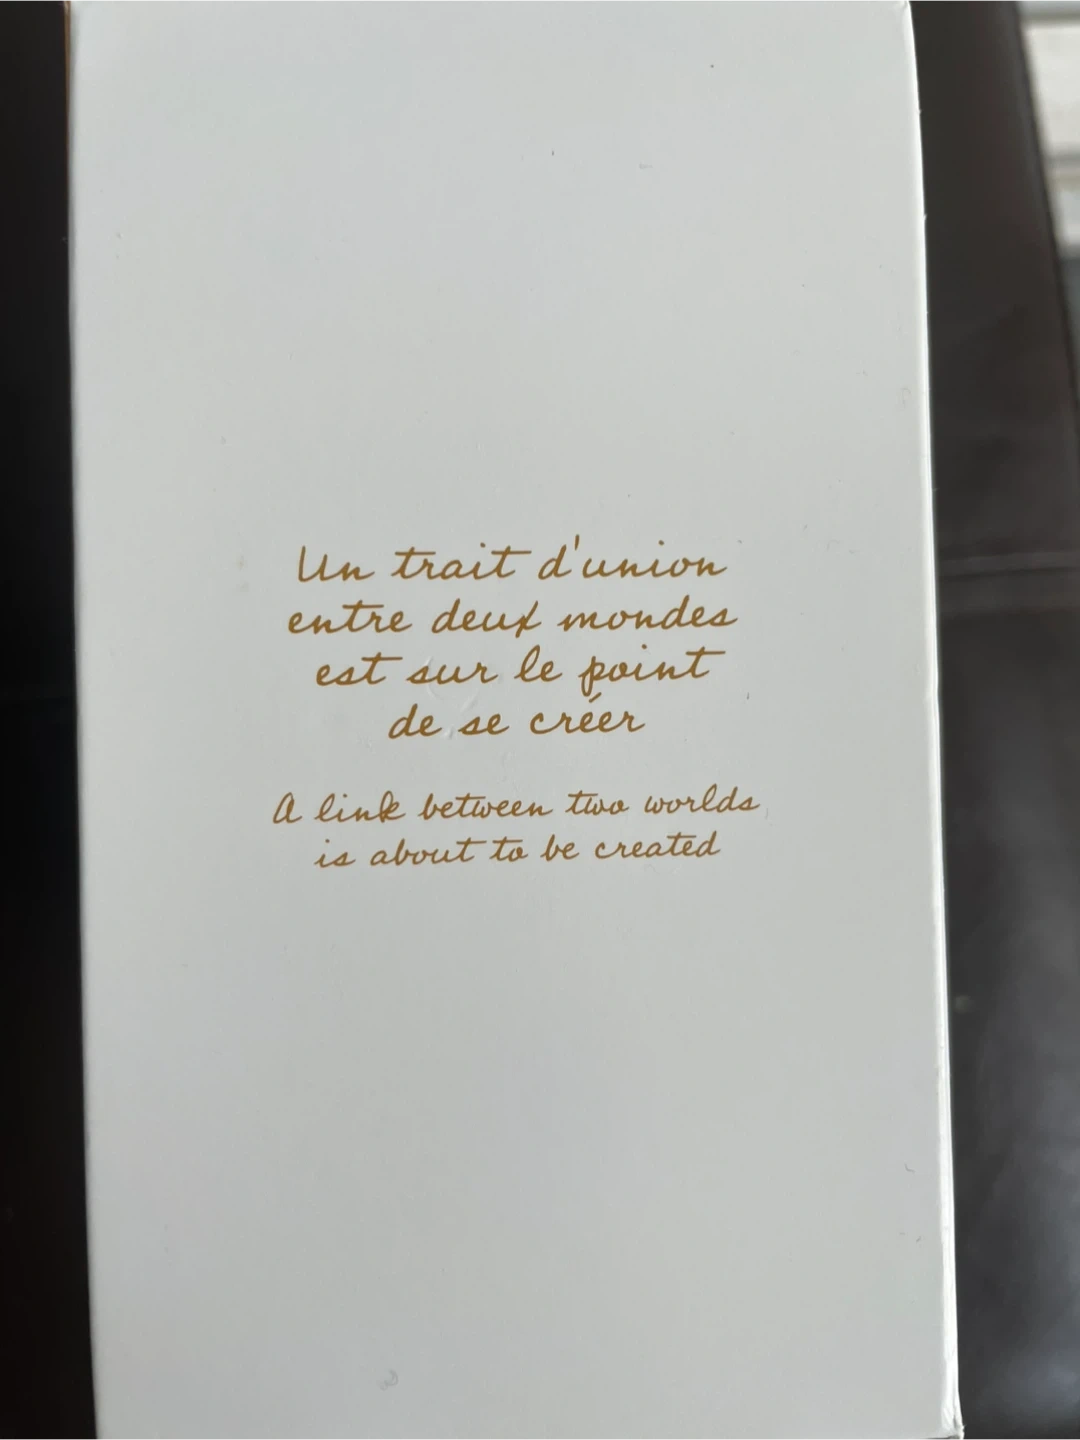 Un trait d'union
entre deux mondes
est sur le point
de se créer
A link between two worlds
is about to be created